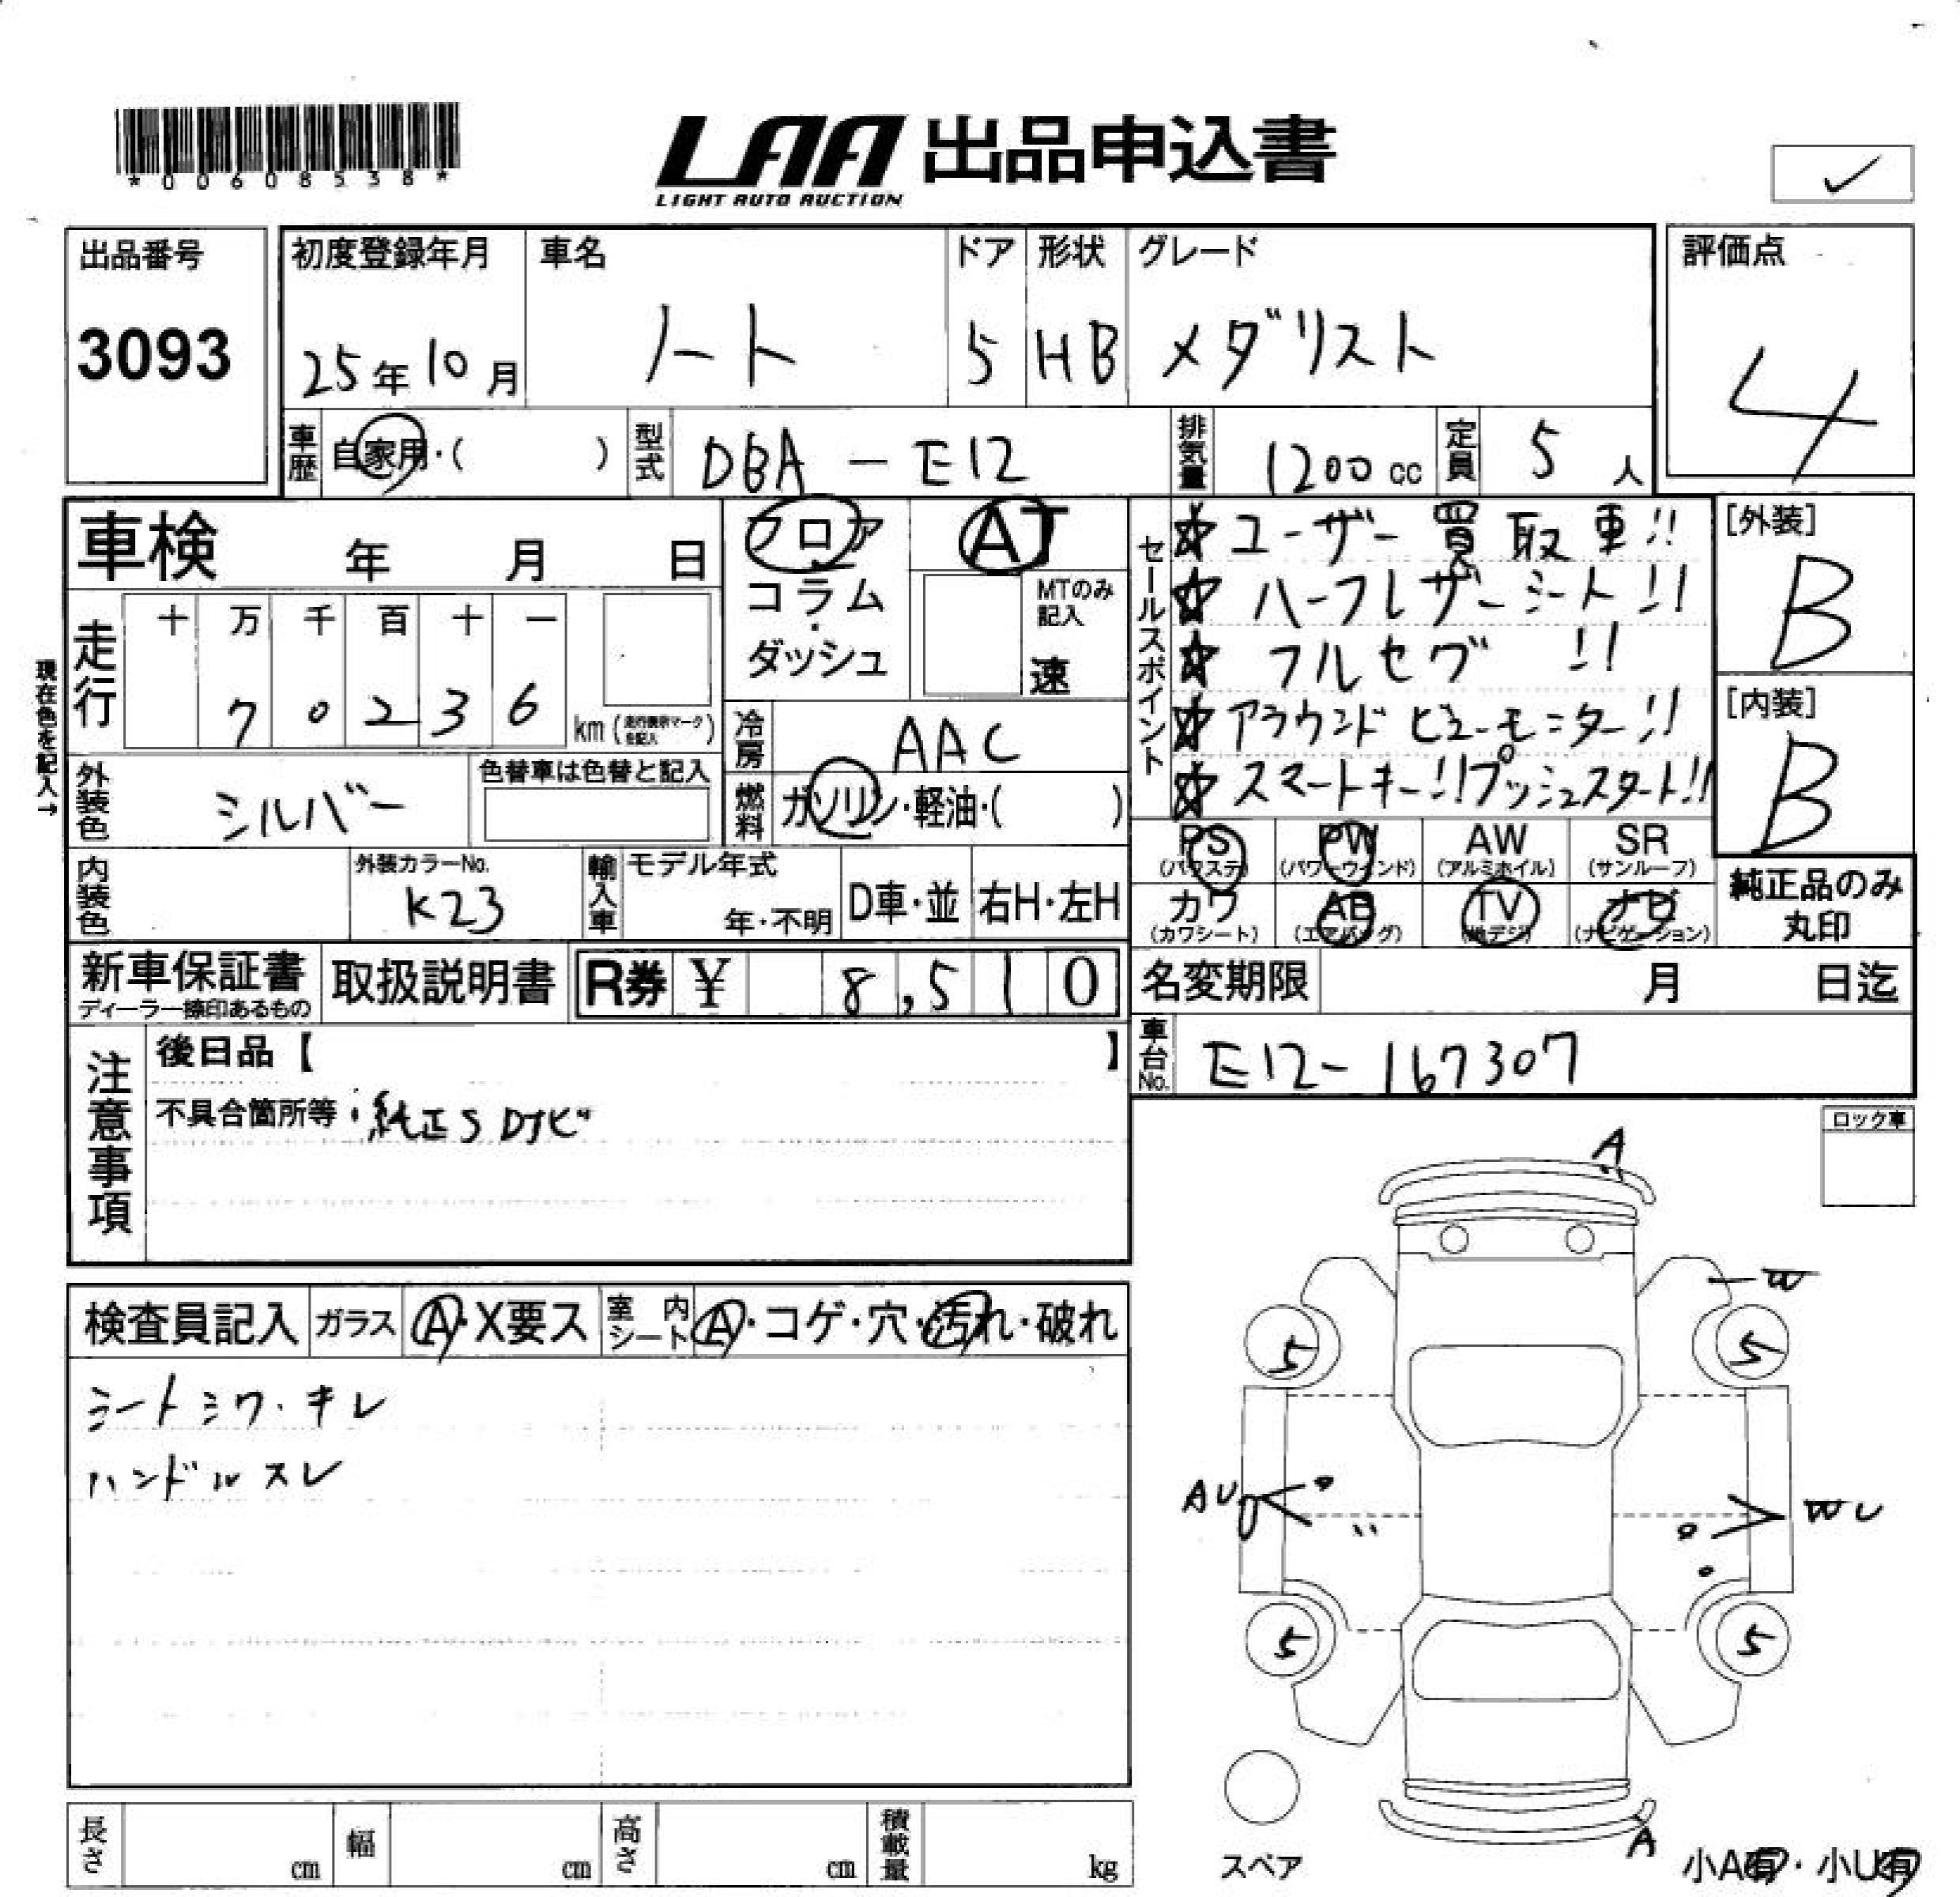 *00608538*
LAA 出品申込書
LIGHT AUTO AUCTION
✓
出品番号
3093
初度登録年月
25年10月
車名
ノート
ドア
5
形状
HB
グレード
メダリスト
評価点
4
車歴 自家用・( )
型式 DBA-E12
排気量 1200cc
定員 5人
車検 年 月 日
フロア
コラム
・
ダッシュ
AT
MTのみ
記入
速
セールスポイント
☆ユーザー買取車!!
☆ハーフレザーシート!!
☆フルセグ!!
☆アラウンドビューモニター!!
☆スマートキー!!プッシュスタート!!
[外装]
B
[内装]
B
現在色を記入→
走行
十 万 千 百 十 一
7 0 2 3 6
km (走行表示マークを記入)
冷房 AAC
外装色 シルバー
色替車は色替と記入
燃料 ガソリン・軽油・( )
PS
(パワステ)
PW
(パワーウィンド)
AW
(アルミホイル)
SR
(サンルーフ)
カワ
(カワシート)
AB
(エアバッグ)
TV
(地デジ)
ナビ
(ナビゲーション)
純正品のみ
丸印
内装色
外装カラーNo.
K23
輸入車
モデル年式
年・不明
D車・並
右H・左H
新車保証書
ディーラー捺印あるもの
取扱説明書
R券 ¥ 8,510
名変期限 月 日迄
車台No. E12-167307
注意事項
後日品【 】
不具合箇所等・純正SDナビ
ロック車
検査員記入
ガラス A・X要ス
室内シート A・コゲ・穴・汚れ・破れ
シートシワ・キレ
ハンドルスレ
A
W
5
5
AU
WU
5
5
A
スペア
小A有・小U有
長さ cm
幅 cm
高さ cm
積載量 kg